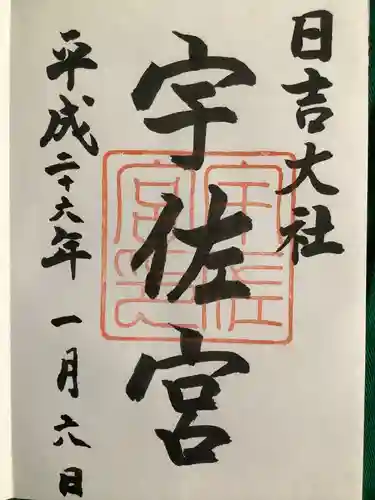 日吉大社
宇佐宮
平成二十六年 一月六日